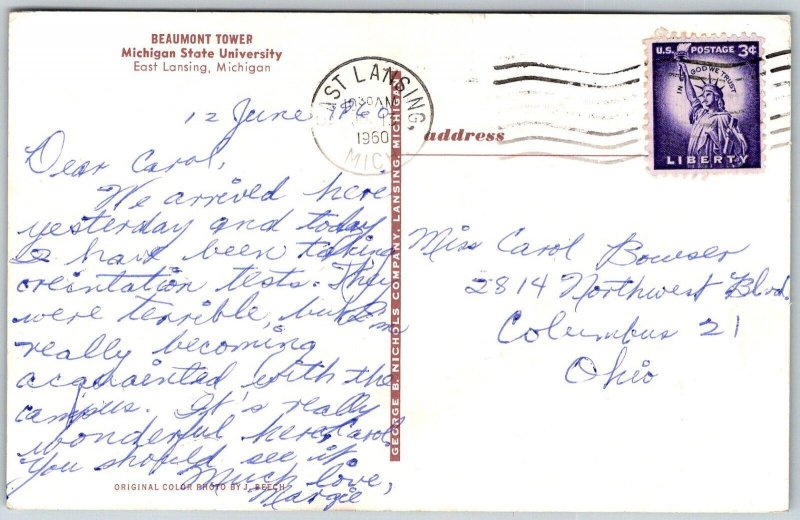 BEAUMONT TOWER
Michigan State University
East Lansing, Michigan
12 June 1960
Dear Carol,
We arrived here
yesterday and today
I have been taking
orientation tests. They
were terrible, but I'm
really becoming
acquainted with the
campus. It's really
wonderful here Carol.
You should see it.
Much love,
Margie
ORIGINAL COLOR PHOTO BY J. BEECH
GEORGE B. NICHOLS COMPANY, LANSING, MICHIGAN
EAST LANSING,
10 30 AM
1960
MICH
address
U.S. POSTAGE 3¢
IN GOD WE TRUST
LIBERTY
Miss Carol Bowser
2814 Northwest Blvd.
Columbus 21
Ohio